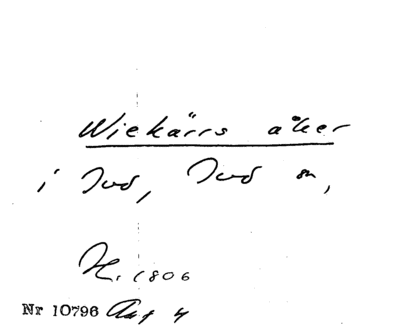 Wiekärrs åker
i Jud, Jud sn,
H. 1806
Nr 10796 Akt 4